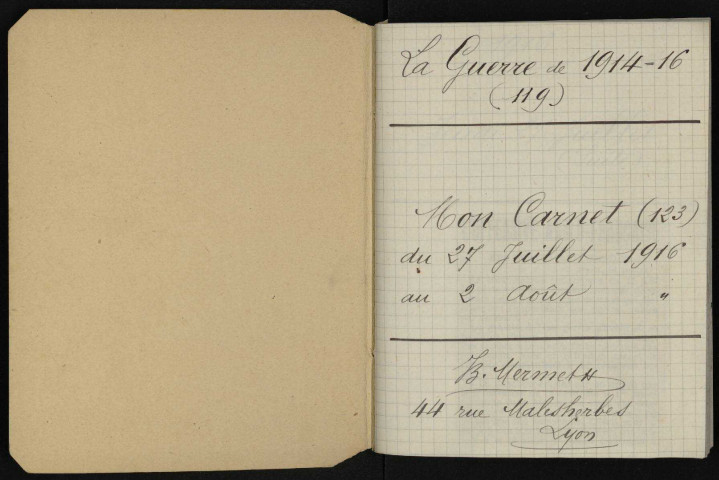 La Guerre de 1914-16
(119)
Mon Carnet (123)
du 27 Juillet 1916
au 2 Août "
B. Mermet
44 rue Malesherbes
Lyon